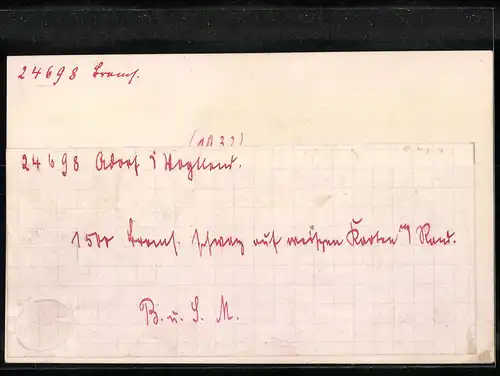 24698 Broms.
(1932)
24698 Adorf i Vogtland.
1500 Broms. schwarz auf weißen Karten m/ Rand.
B. u. S. M.